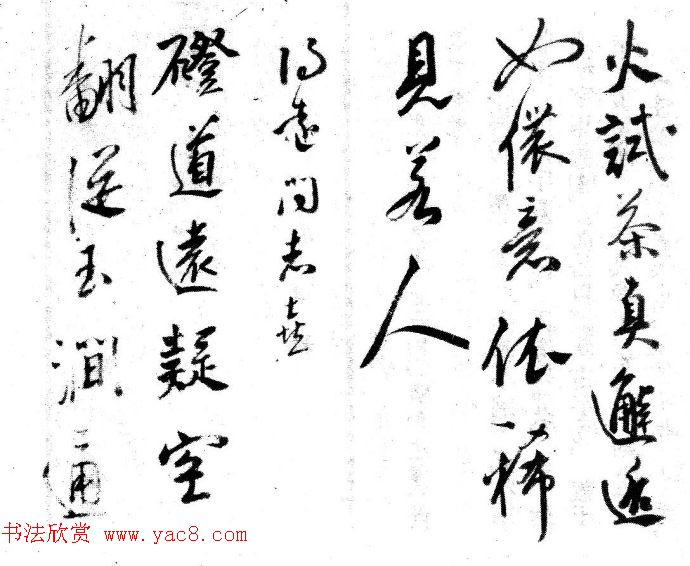 火試茶真邂逅
如儂意依稀
見若人
問志喜
磴道遠疑空
翻從玉澗通
书法欣赏 www.yac8.com